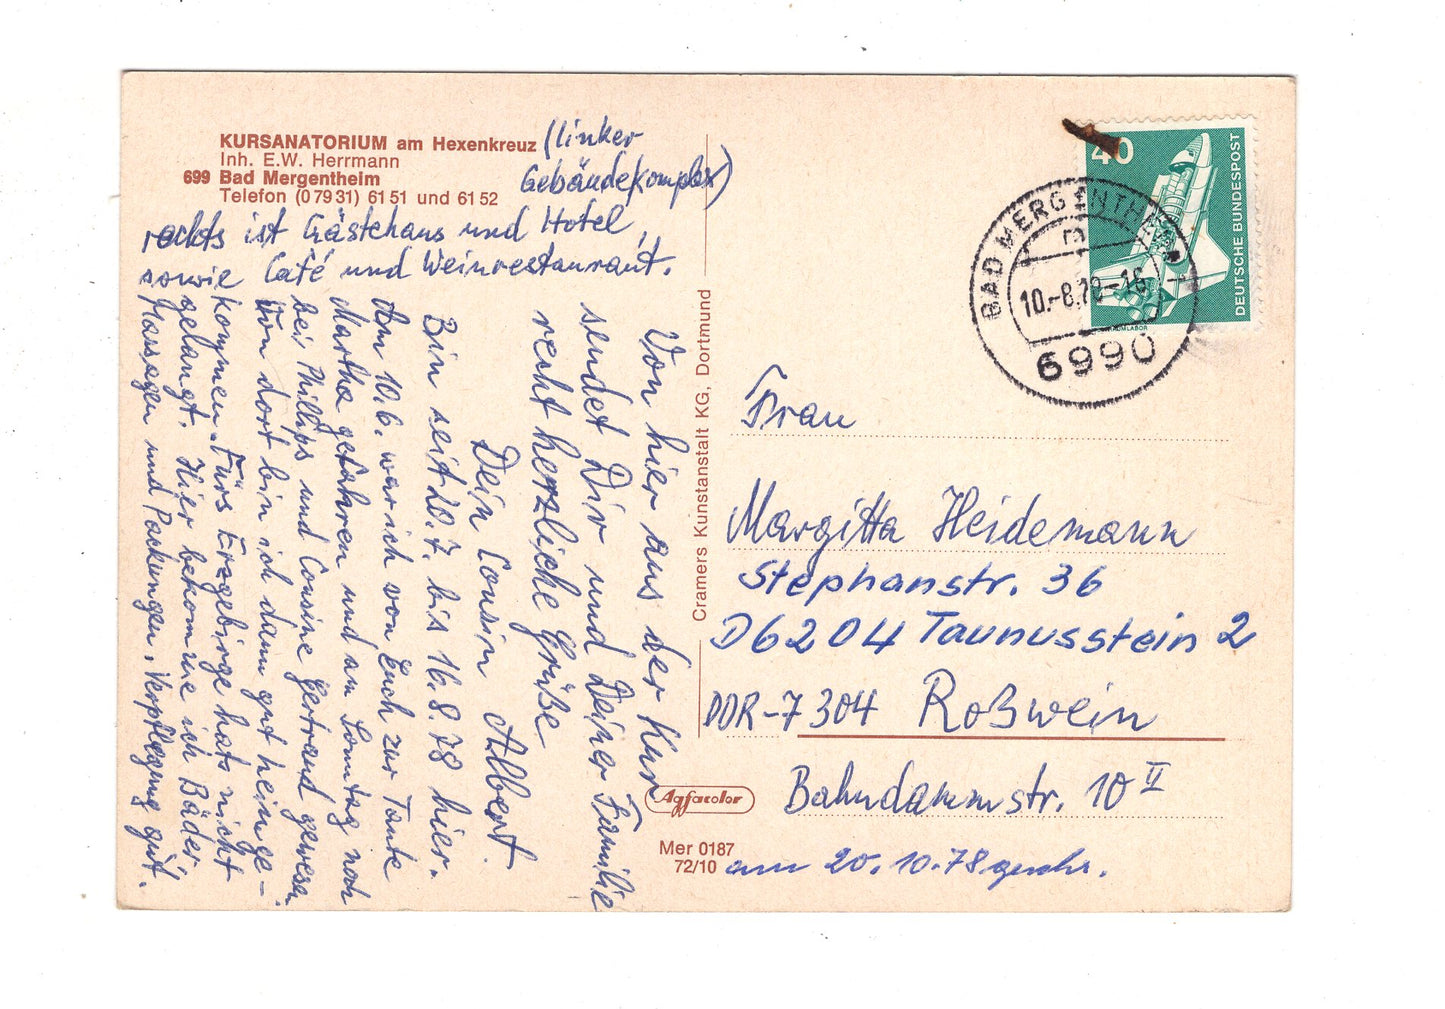 KURSANATORIUM am Hexenkreuz
Inh. E.W. Herrmann
699 Bad Mergentheim
Telefon (0 79 31) 61 51 und 61 52
(linker
Gebäudekomplex)
rechts ist Gästehaus und Hotel,
sowie Café und Weinrestaurant.
Von hier aus der Kur
sendet Dir und Deiner Familie
recht herzliche Grüße
Dein Cousin Albert.
Bin seit 20.7. bis 16.8.78 hier.
Am 10.6. war ich von Euch zur Tante
Martha gefahren und am Sonntag noch
bei Phillips und Cousine Gertraud gewesen.
Von dort bin ich dann gut heinge-
kommen. Fürs Erzgebirge hats nicht
gelangt. Hier bekomme ich Bäder,
Massagen und Packungen. Verpflegung gut.
Cramers Kunstanstalt KG, Dortmund
Agfacolor
Mer 0187
72/10
40
DEUTSCHE BUNDESPOST
BAD MERGENTHEIM 1
m
10.-8.78-16
6990
Frau
Margitta Heidemann
Stephanstr. 36
D6204 Taunusstein 2
DDR-7304 Roßwein
Bahndammstr. 10 II
am 20.10.78